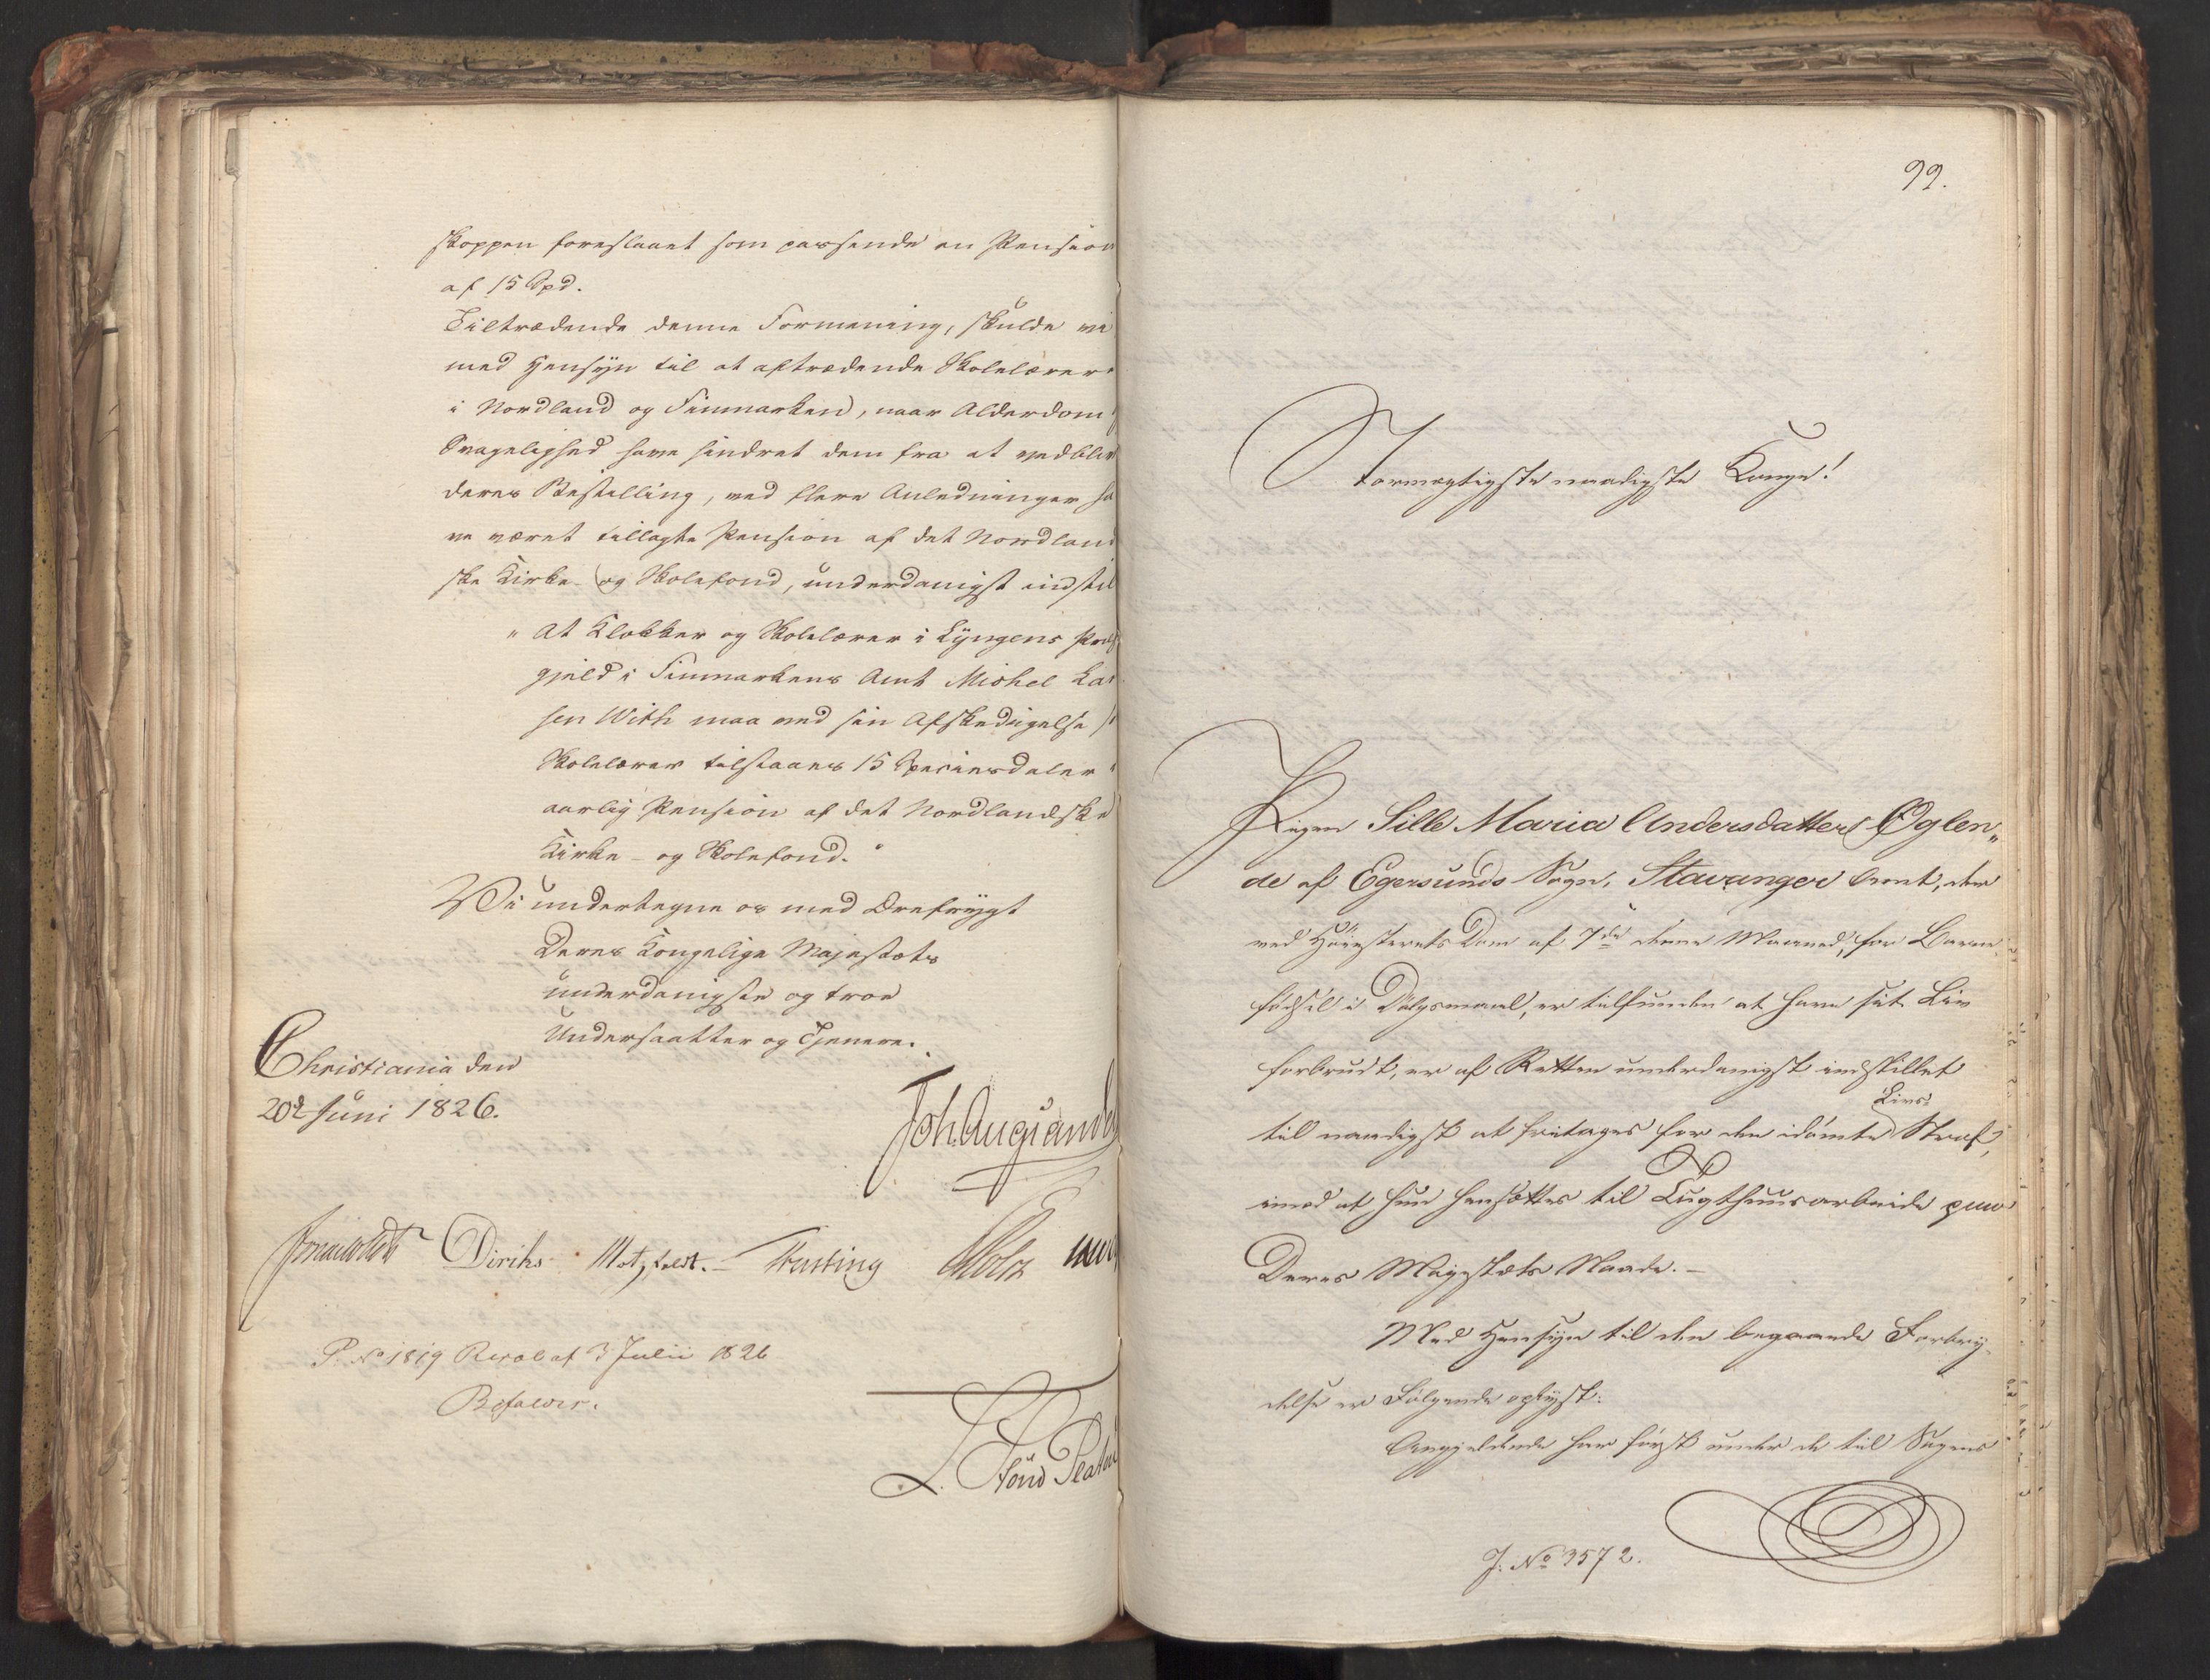 skoppen foreslaaet som passende en Pension
af 15 Spd.
Tiltrædende denne Formening, skulde vi
med Hensyn til at aftrædende Skolelærer
i Nordland og Finmarken, naar Alderdom
Svagelighed have hindret dem fra at vedbliv
deres Bestilling, ved flere Anledninger ha
ve været tillagte Pension af det Nordland
ske Kirke- og Skolefond, underdanigst indstil
" At Klokker og Skolelærer i Lyngens Præs
gjeld i Finmarkens Amt Michel La
sen With maa ved sin Afskedigelse
Skolelærer tilstaaes 15 Speciesdaler
aarlig Pension af det Nordlandske
Kirke- og Skolefond. "
Vi undertegne os med Ærefrygt
Deres Kongelige Majestæts
underdanigste og troe
Undersaatter og Tjenere.
Christiania den
20d Juni 1826.
Joh. Aug: Sandel
Diriks Motzfeldt. Treschow
P. No 1819 Resol af 3 Julii 1826
Bifaldes.
99.
Stormægtigste naadigste Konge!
Pigen Sille Maria Andersdatter Oglen„
de af Egersunds Sogn, Stavanger Amt, der
ved HøiesteretsDom af 7de denne Maaned, for Barne
fødsel i Dølgsmaal, er tilfunden at have sit Liv
forbrudt, er af Retten underdanigst indstillet
til naadigst at fritages for den idømte Livs Straf,
imod at hun hensættes til Tugthuusarbeide paa
Deres Majestæts Naade. -
Med Hensyn til den begaaede Forbry-
delse er Følgende oplyst:
Angjeldende har først under de til Sagens
J. No 3572.